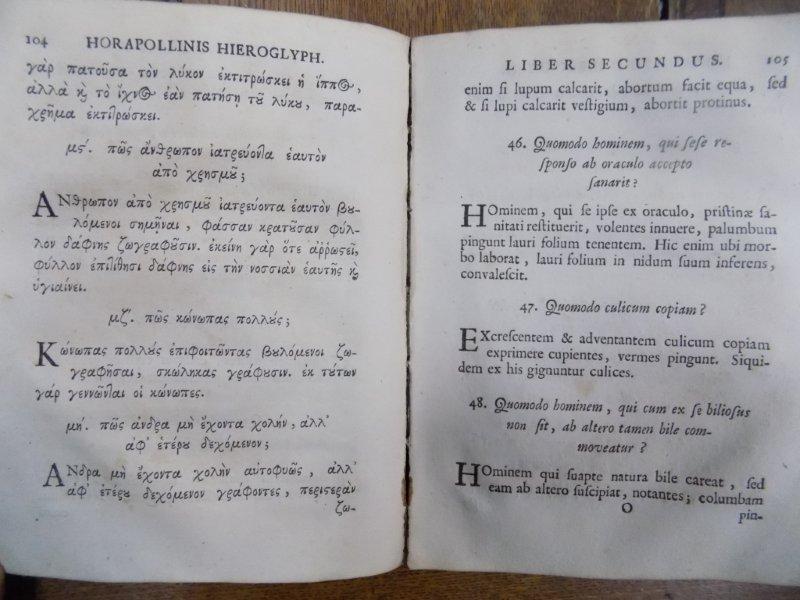 104 HORAPOLLINIS HIEROGLYPH.
γὰρ πατοῦσα τὸν λύκον ἐκτιτρώσκει ἡ ἵππος,
ἀλλὰ καὶ τὸ ἴχνος ἐὰν πατήσῃ τοῦ λύκου, παρα-
χρῆμα ἐκτιτρώσκει.
μϛʹ. πῶς ἄνθρωπον ἰατρεύοντα ἑαυτὸν
ἀπὸ χρησμοῦ;
ΑΝθρωπον ἀπὸ χρησμοῦ ἰατρεύοντα ἑαυτὸν βου-
λόμενοι σημῆναι, φάσσαν κρατοῦσαν φύλ-
λον δάφνης ζωγραφοῦσιν. ἐκείνη γὰρ ὅτε ἀῤῥωςεῖ,
φύλλον ἐπιτίθησι δάφνης εἰς τὴν νοσσιὰν ἑαυτῆς καὶ
ὑγιαίνει.
μζʹ. πῶς κώνωπας πολλούς;
Κώνωπας πολλοὺς ἐπιφοιτῶντας βουλόμενοι ζω-
γραφῆσαι, σκώληκας γράφουσιν. ἐκ τούτων
γὰρ γεννῶνται οἱ κώνωπες.
μηʹ. πῶς ἄνδρα μὴ ἔχοντα χολὴν, ἀλλ'
ἀφ' ἑτέρου δεχόμενον;
ΑΝδρα μὴ ἔχοντα χολὴν αὐτοφυῶς, ἀλλ'
ἀφ' ἑτέρου δεχόμενον γράφοντες, περιςερὰν
ζω-
LIBER SECUNDUS. 105
enim si lupum calcarit, abortum facit equa, sed
& si lupi calcarit vestigium, abortit protinus.
46. Quomodo hominem, qui sese re-
sponso ab oraculo accepto
sanarit?
HOminem, qui se ipse ex oraculo, pristinæ sa-
nitati restituerit, volentes innuere, palumbum
pingunt lauri folium tenentem. Hic enim ubi mor-
bo laborat, lauri folium in nidum suum inferens,
convalescit.
47. Quomodo culicum copiam?
EXcrescentem & adventantem culicum copiam
exprimere cupientes, vermes pingunt. Siqui-
dem ex his gignuntur culices.
48. Quomodo hominem, qui cum ex se biliosus
non sit, ab altero tamen bile com-
moveatur?
HOminem qui suapte natura bile careat, sed
eam ab altero suscipiat, notantes; columbam
O pin-